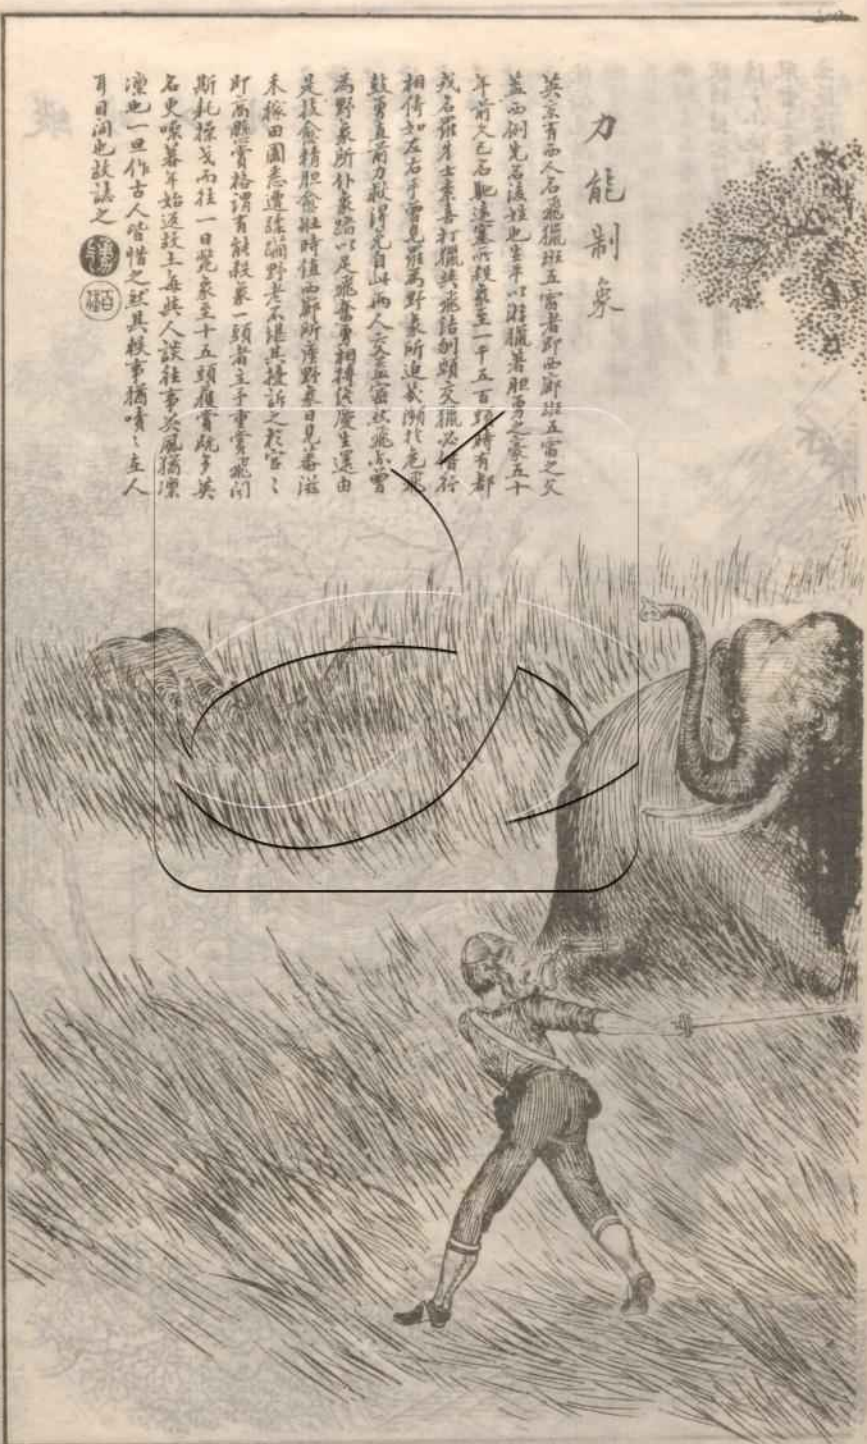 力能制象
英京有西人名飛獵班五雷者即西廊班五雷之父
蓋西例先名後姓也生平以游獵著胆勇之豪五十
年前久已名馳遠塞所殺象至一千五百頭時有都
戎名羅牟士素喜打獵與飛結刎頸交獵必偕行
相倚如左右手曾見羅為野象所迫幾瀕於危飛
鼓勇直前力救得免自此兩人交益密然飛亦曾
為野象所仆象踏以足飛奮勇相搏後慶生還由
是技愈精胆愈壯時值西鄙所產野象日見蕃滋
禾稼田園悉遭蹂躪野老不堪其擾訴之於官
即高懸賞格謂有能殺象一頭者立予重賞飛聞
斯耗操戈而往一日斃象至十五頭獲賞既多英
名更噪暮年始返故土每與人談往事英風猶凜
凜也一旦作古人皆惜之然其軼事猶嘖嘖在人
耳目間也故誌之